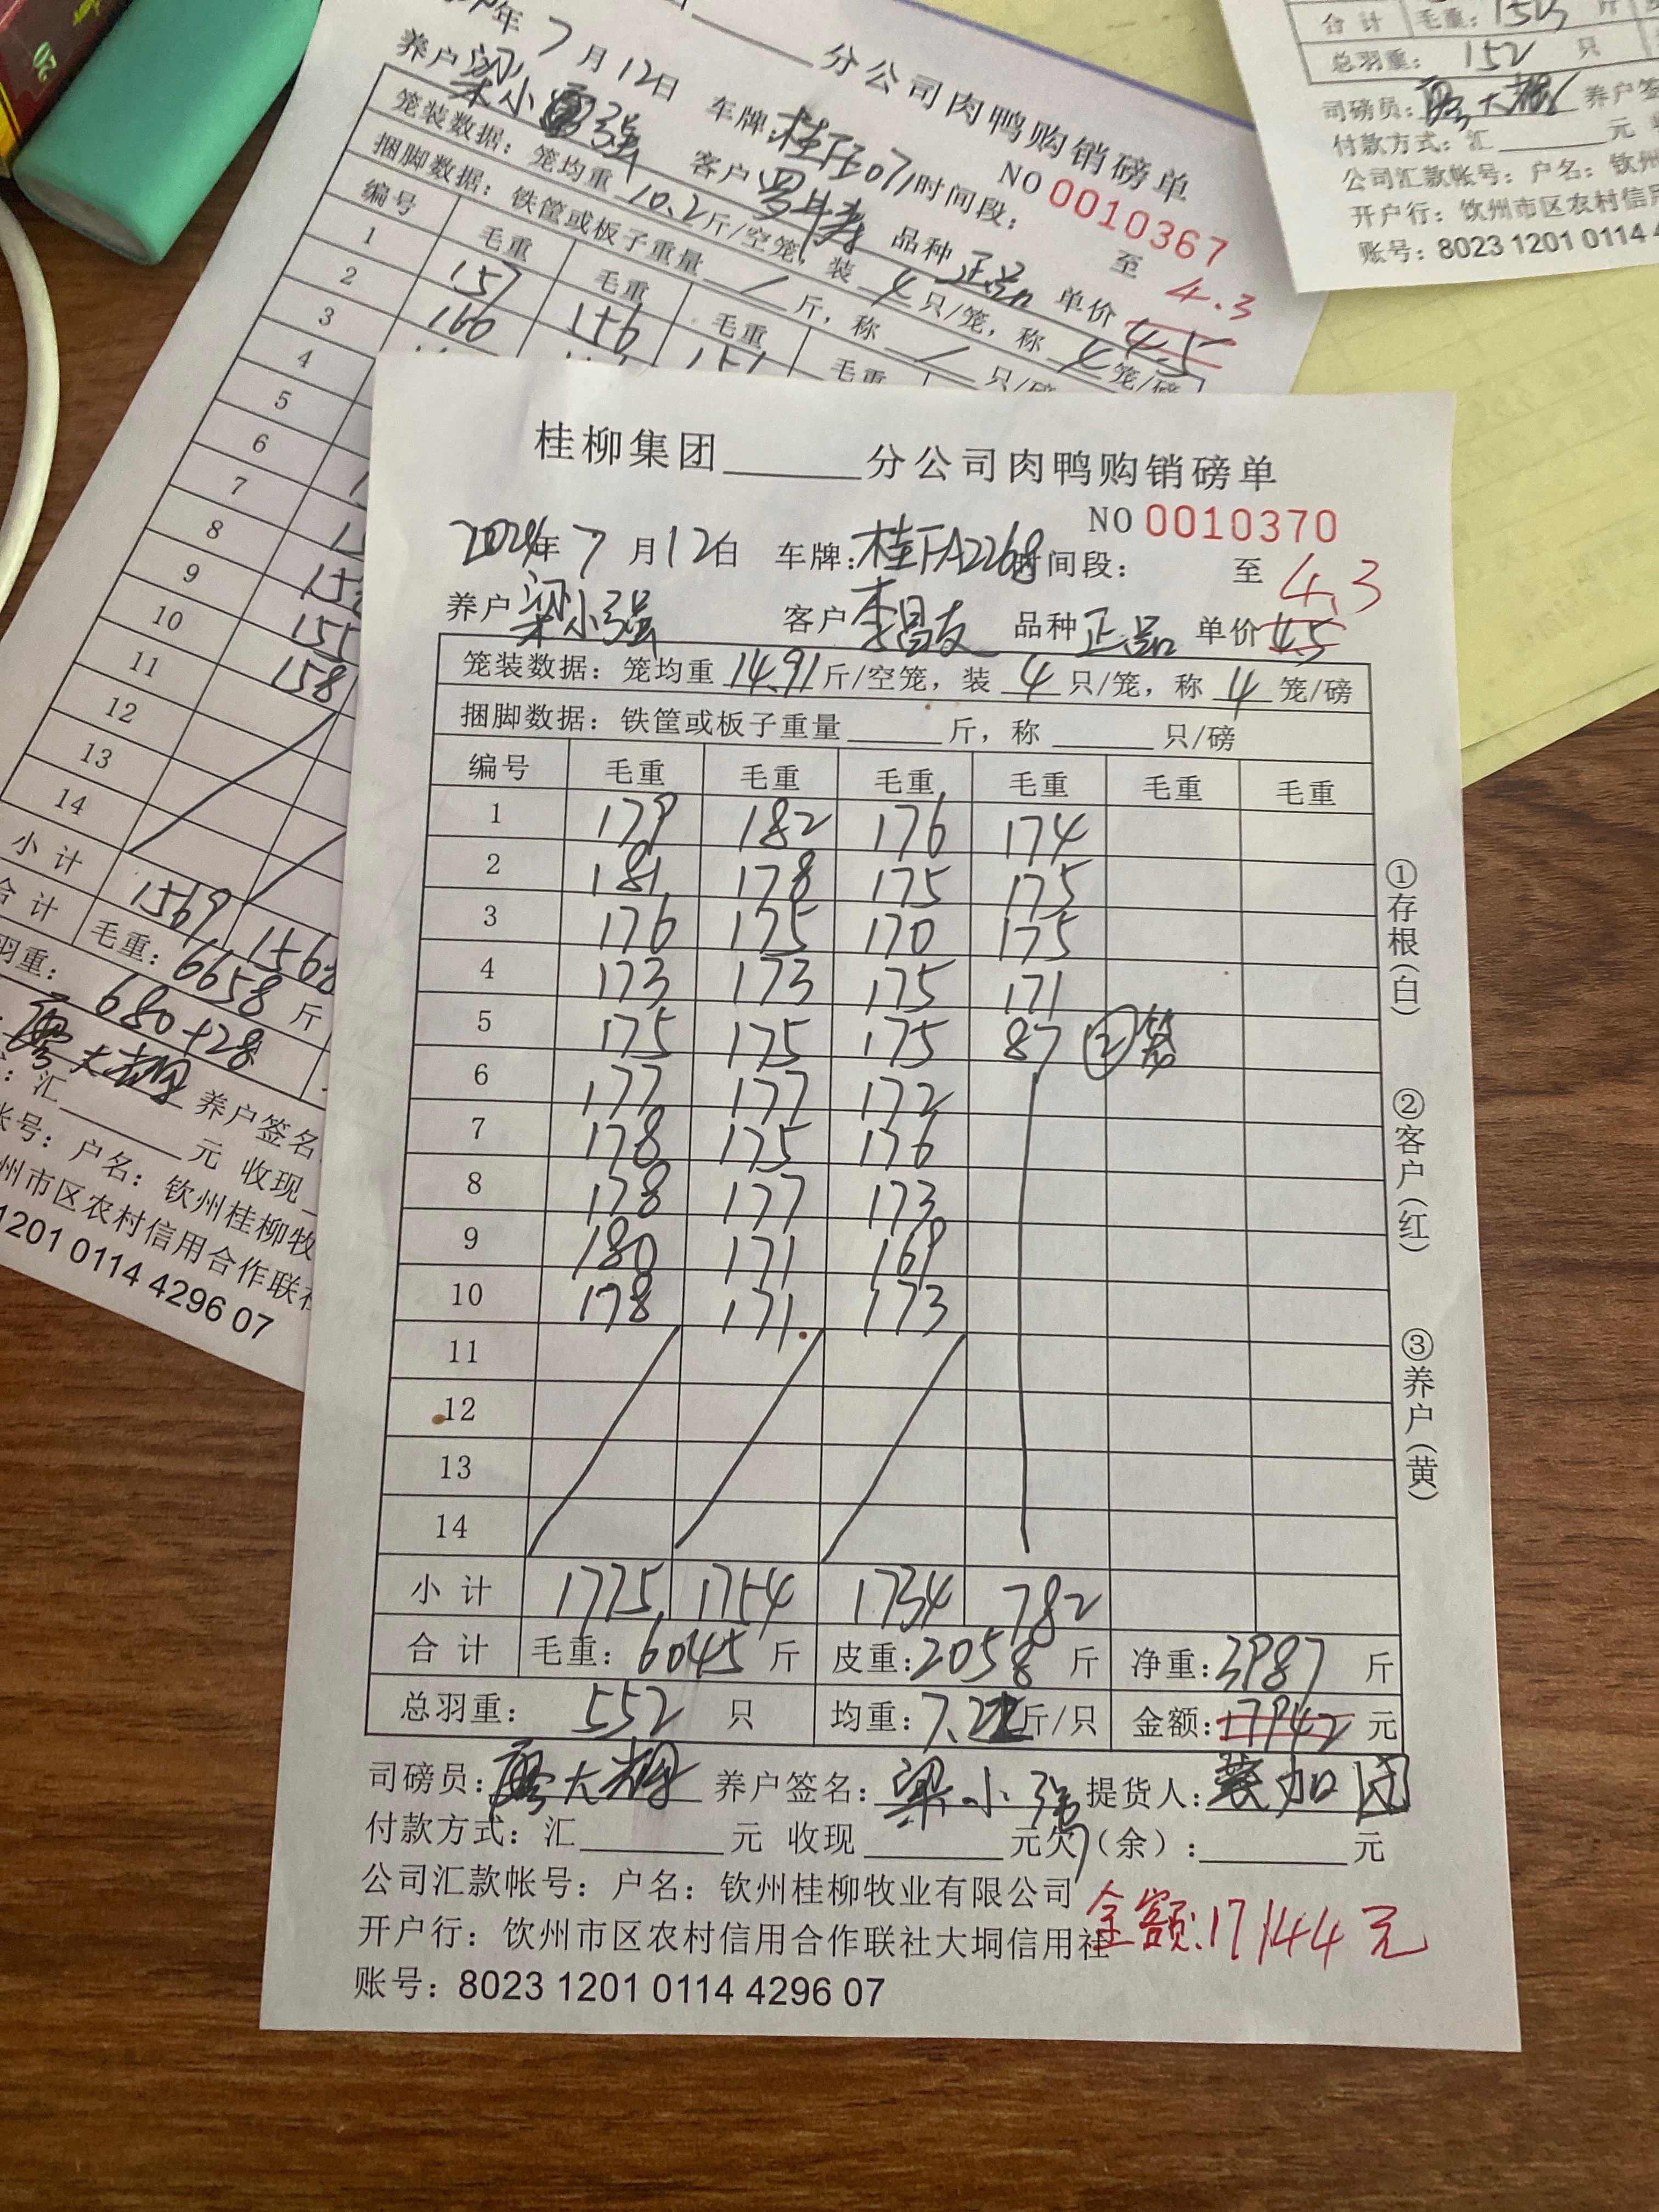 年7月12日 车牌:桂 07 时间段: 至 4.3
分公司肉鸭购销磅单
NO 0010367
养户 梁小强 客户 罗 品种 正品 单价 4.5
笼装数据: 笼均重 10.2 斤/空笼, 装 4 只/笼, 称 4 笼/磅
捆脚数据: 铁筐或板子重量 / 斤, 称 / 只/磅
编号 毛重 毛重 毛重 毛重
1 157 156 151
2 160
3
4
5
6
7
8
9
10 155
11 158
12
13
14
小计 1569 1568
合计 毛重: 6658 斤
羽重: 680+28
廖大雄 养户签名
: 汇 元 收现
帐号: 户名: 钦州桂柳牧
州市区农村信用合作联社
1201 0114 4296 07
合计 毛重: 斤
总羽重: 152 只
司磅员: 廖大雄 养户签
付款方式: 汇 元
公司汇款帐号: 户名: 钦州
开户行: 钦州市区农村信用
账号: 8023 1201 0114 4
桂柳集团 分公司肉鸭购销磅单
NO 0010370
2024年 7 月 12 日 车牌: 桂FA2268 时间段: 至 4.3
养户 梁小强 客户 李昌友 品种 正品 单价 4.5
笼装数据: 笼均重 14.91 斤/空笼, 装 4 只/笼, 称 4 笼/磅
捆脚数据: 铁筐或板子重量 斤, 称 只/磅
编号 毛重 毛重 毛重 毛重 毛重 毛重
1 179 182 176 174
2 181 178 175 175
3 176 175 170 175
4 173 173 175 171
5 175 175 175 87 ②笼
6 177 177 172
7 178 175 176
8 178 177 173
9 180 171 169
10 178 171 173
11
12
13
14
小计 1775 1754 1734 782
合计 毛重: 6045 斤 皮重: 2058 斤 净重: 3987 斤
总羽重: 552 只 均重: 7.22 斤/只 金额: 17942 元
司磅员: 廖大雄 养户签名: 梁小强 提货人: 加团
付款方式: 汇 元 收现 元欠(余): 元
公司汇款帐号: 户名: 钦州桂柳牧业有限公司
金额: 17144元
开户行: 钦州市区农村信用合作联社大垌信用社
账号: 8023 1201 0114 4296 07
①存根(白)
②客户(红)
③养户(黄)